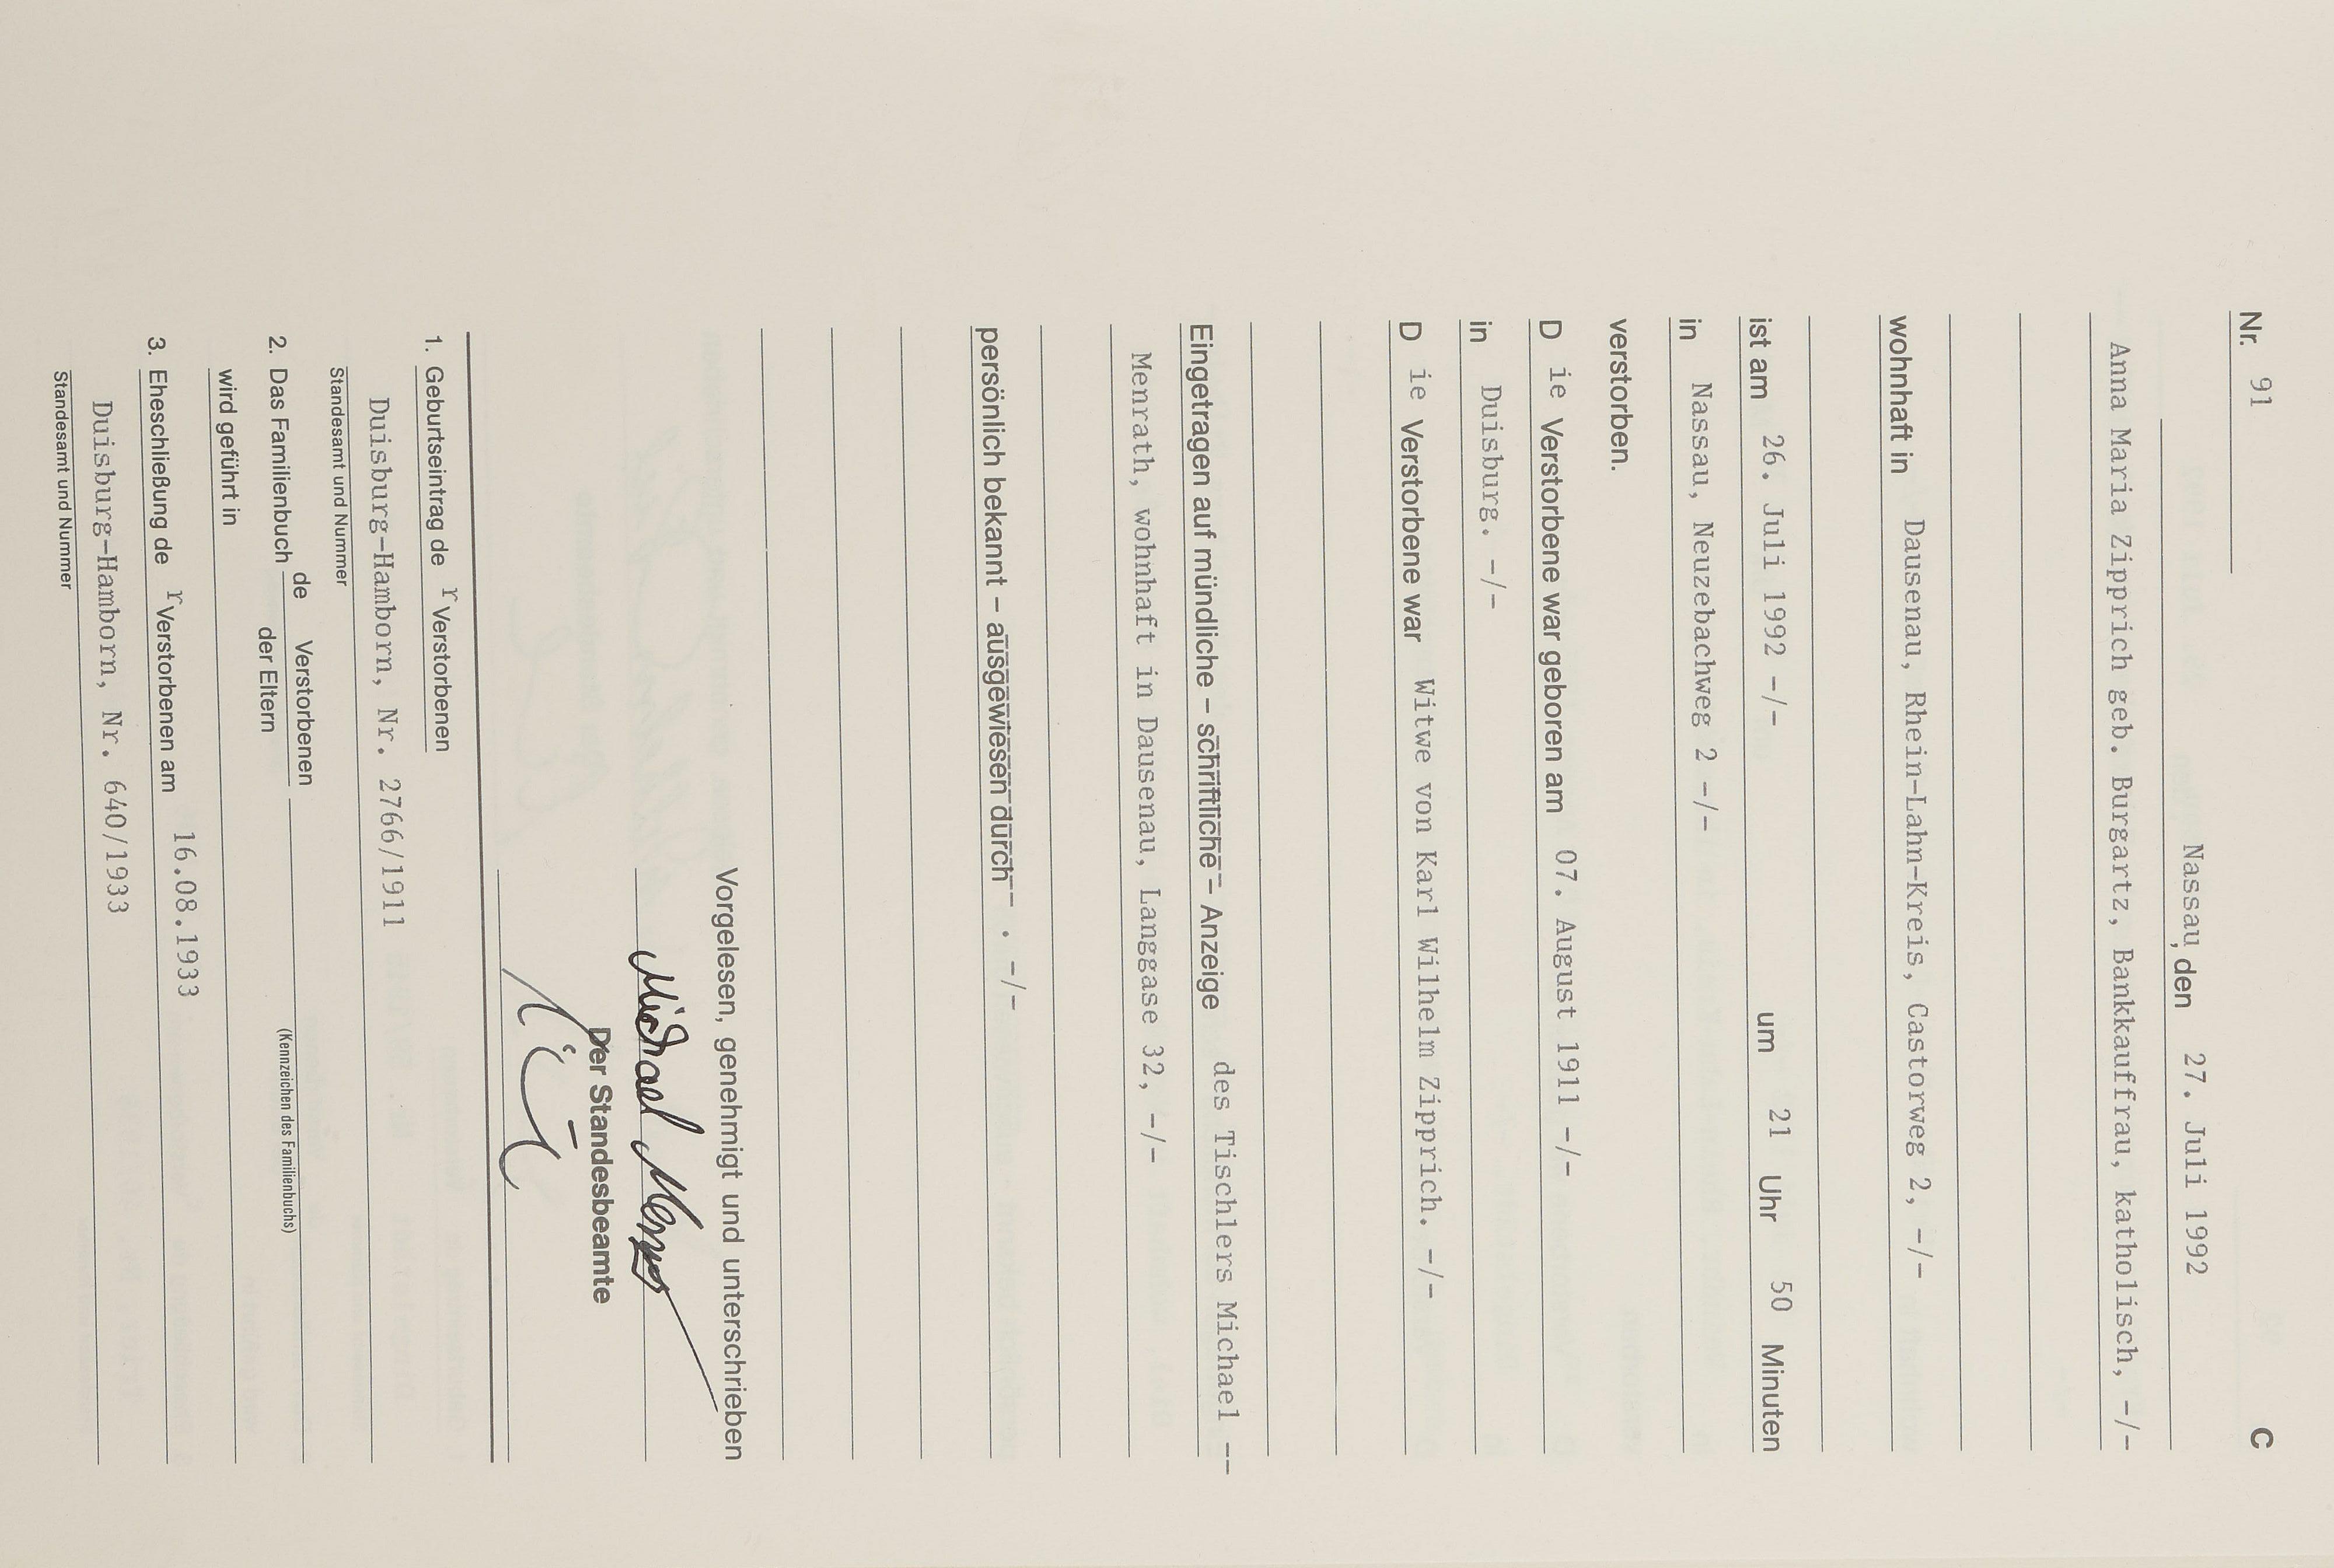 Nr. 91 C
Nassau, den 27. Juli 1992
Anna Maria Zipprich geb. Burgartz, Bankkauffrau, katholisch, -/-
wohnhaft in Dausenau, Rhein-Lahn-Kreis, Castorweg 2, -/-
ist am 26. Juli 1992 -/- um 21 Uhr 50 Minuten
in Nassau, Neuzebachweg 2 -/-
verstorben.
D ie Verstorbene war geboren am 07. August 1911 -/-
in Duisburg. -/-
D ie Verstorbene war Witwe von Karl Wilhelm Zipprich. -/-
Eingetragen auf mündliche – schriftliche – Anzeige des Tischlers Michael --
Menrath, wohnhaft in Dausenau, Langgase 32, -/-
persönlich bekannt – ausgewiesen durch . -/-
Vorgelesen, genehmigt und unterschrieben
Michael
Der Standesbeamte
1. Geburtseintrag de r Verstorbenen
Duisburg-Hamborn, Nr. 2766/1911
Standesamt und Nummer
2. Das Familienbuch de Verstorbenen
der Eltern
(Kennzeichen des Familienbuchs)
wird geführt in
3. Eheschließung de r Verstorbenen am 16.08.1933
Duisburg-Hamborn, Nr. 640/1933
Standesamt und Nummer